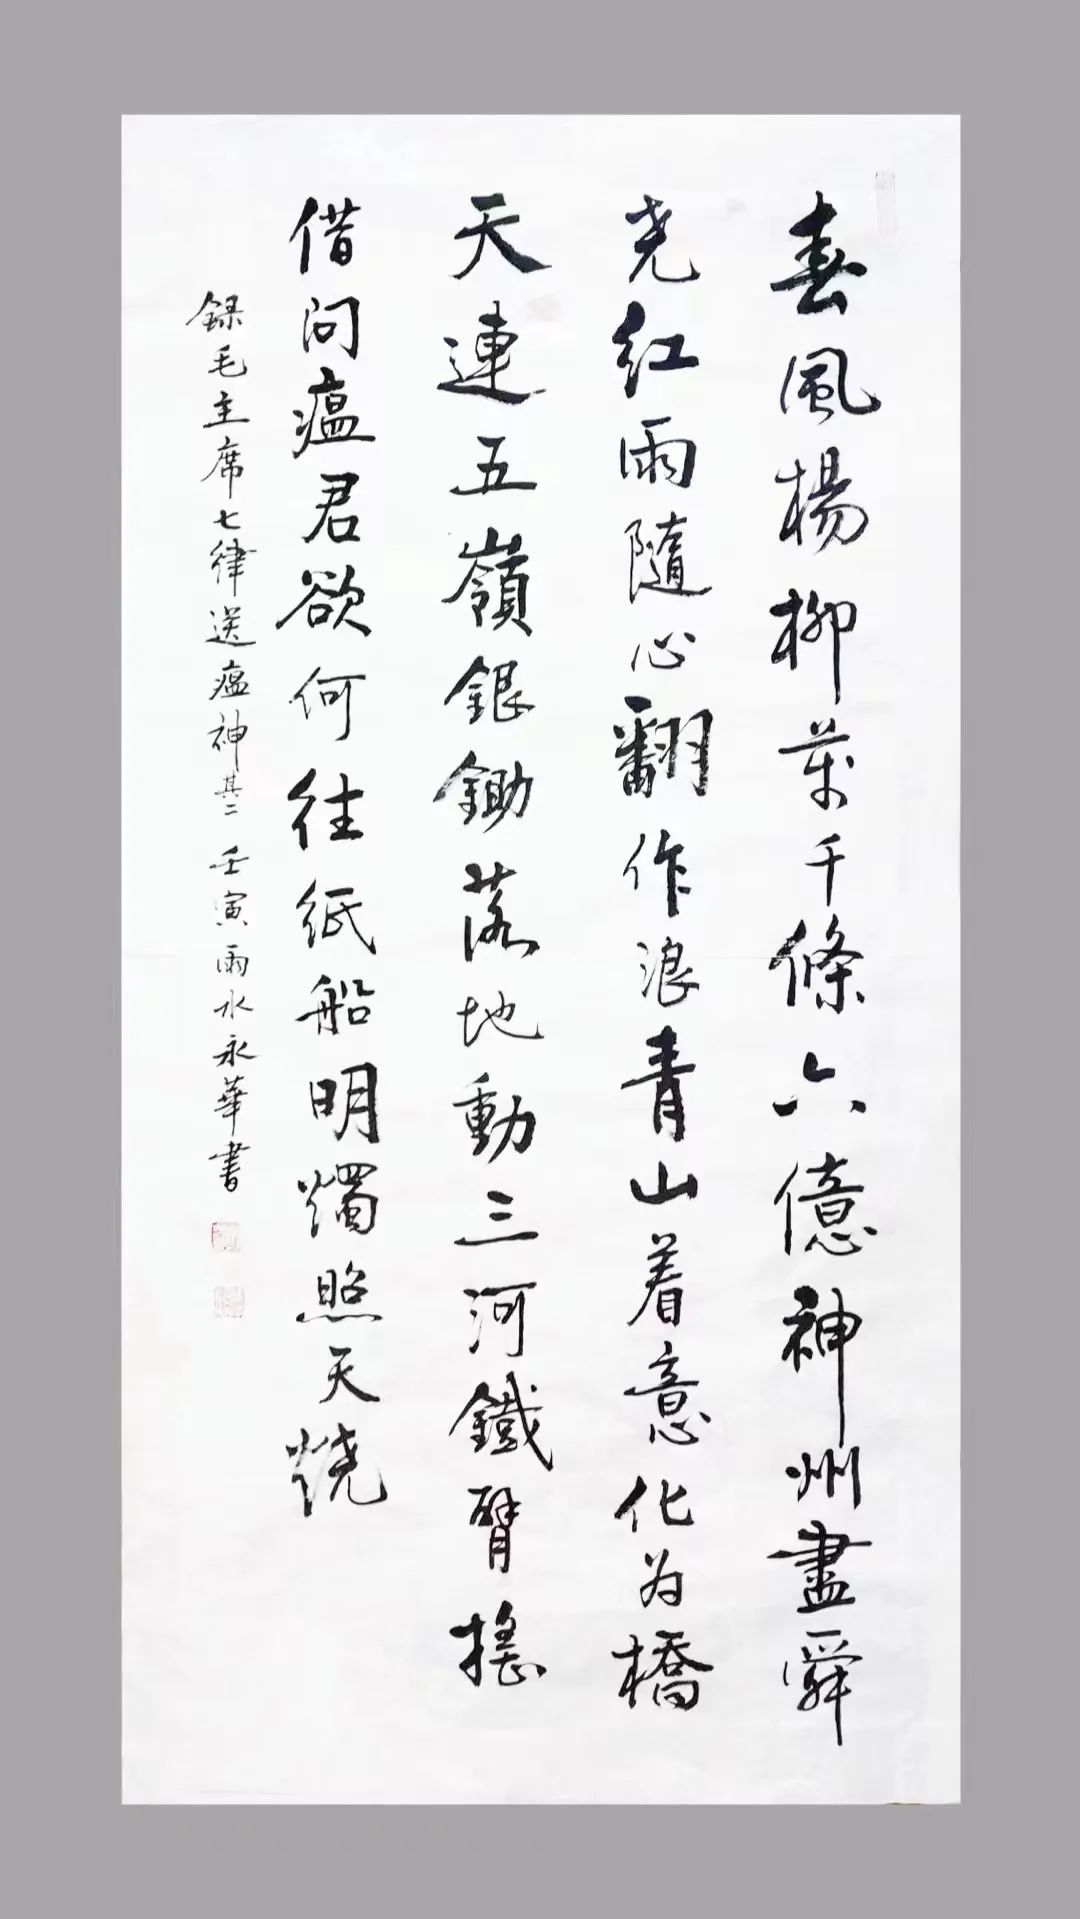 春風楊柳萬千條六億神州盡舜
尧红雨隨心翻作浪青山着意化为橋
天連五嶺銀鋤落地動三河鐵臂搖
借问瘟君欲何往紙船明燭照天燒
録毛主席七律送瘟神其二 壬寅雨水永華書